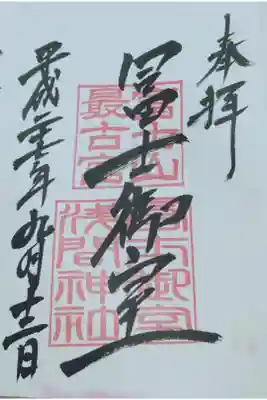 奉拝
冨士御室
富士山
最古宮
冨士御室
浅間神社
平成二十三年九月十三日